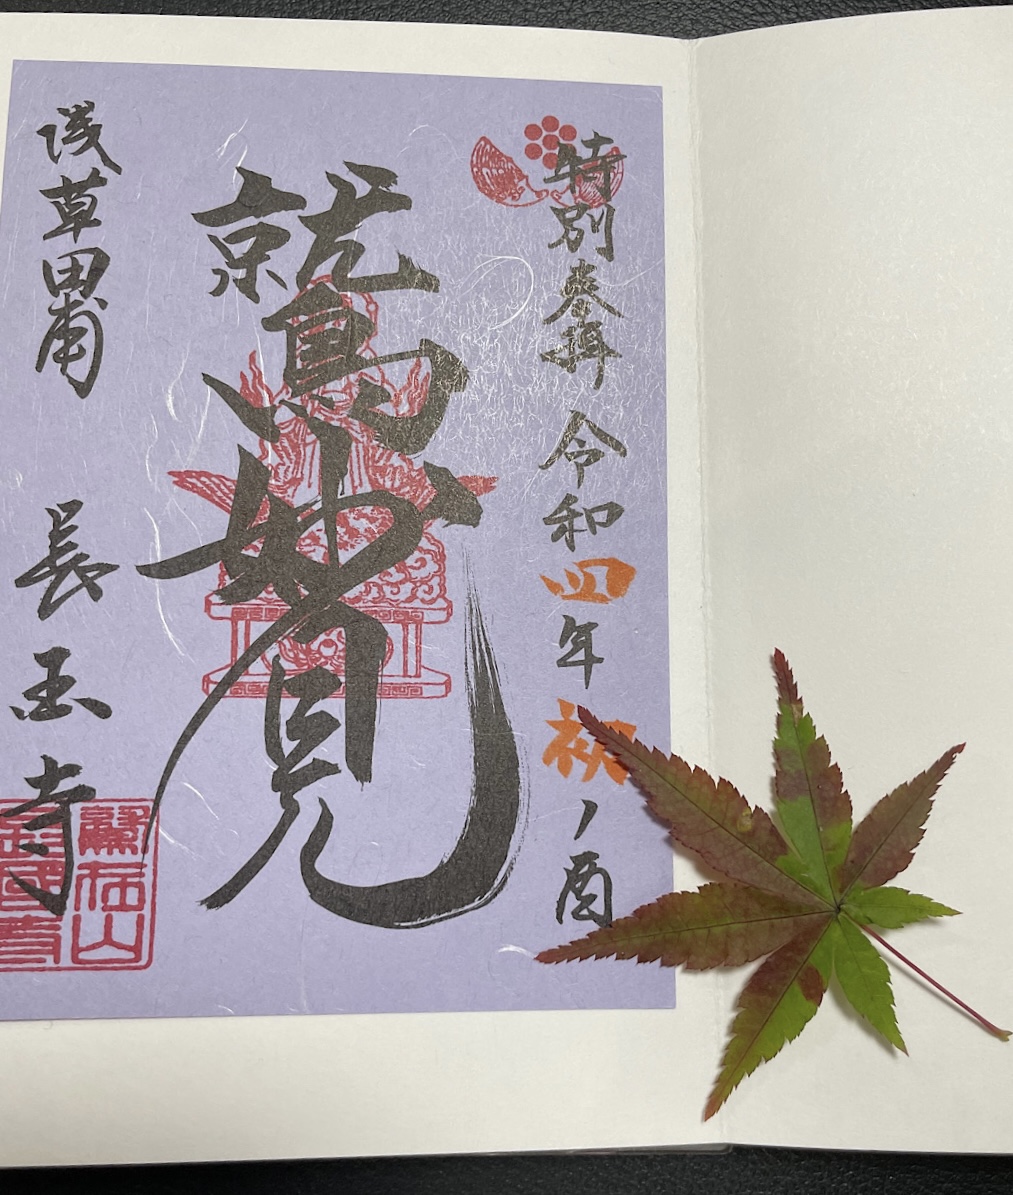 特別参拝 令和四年 初ノ酉
鷲妙見
浅草田甫 長国寺
鷲在山
長國寺